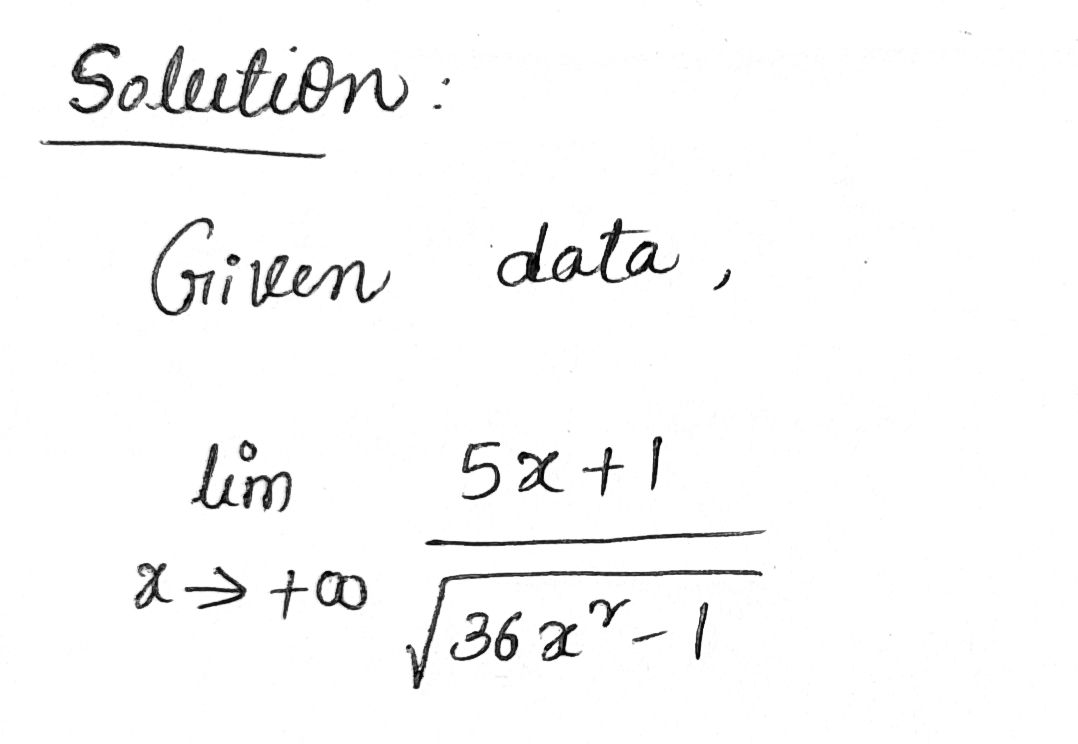 Solution:
Given data,
lim 5x+1
x→+∞ √36x²-1